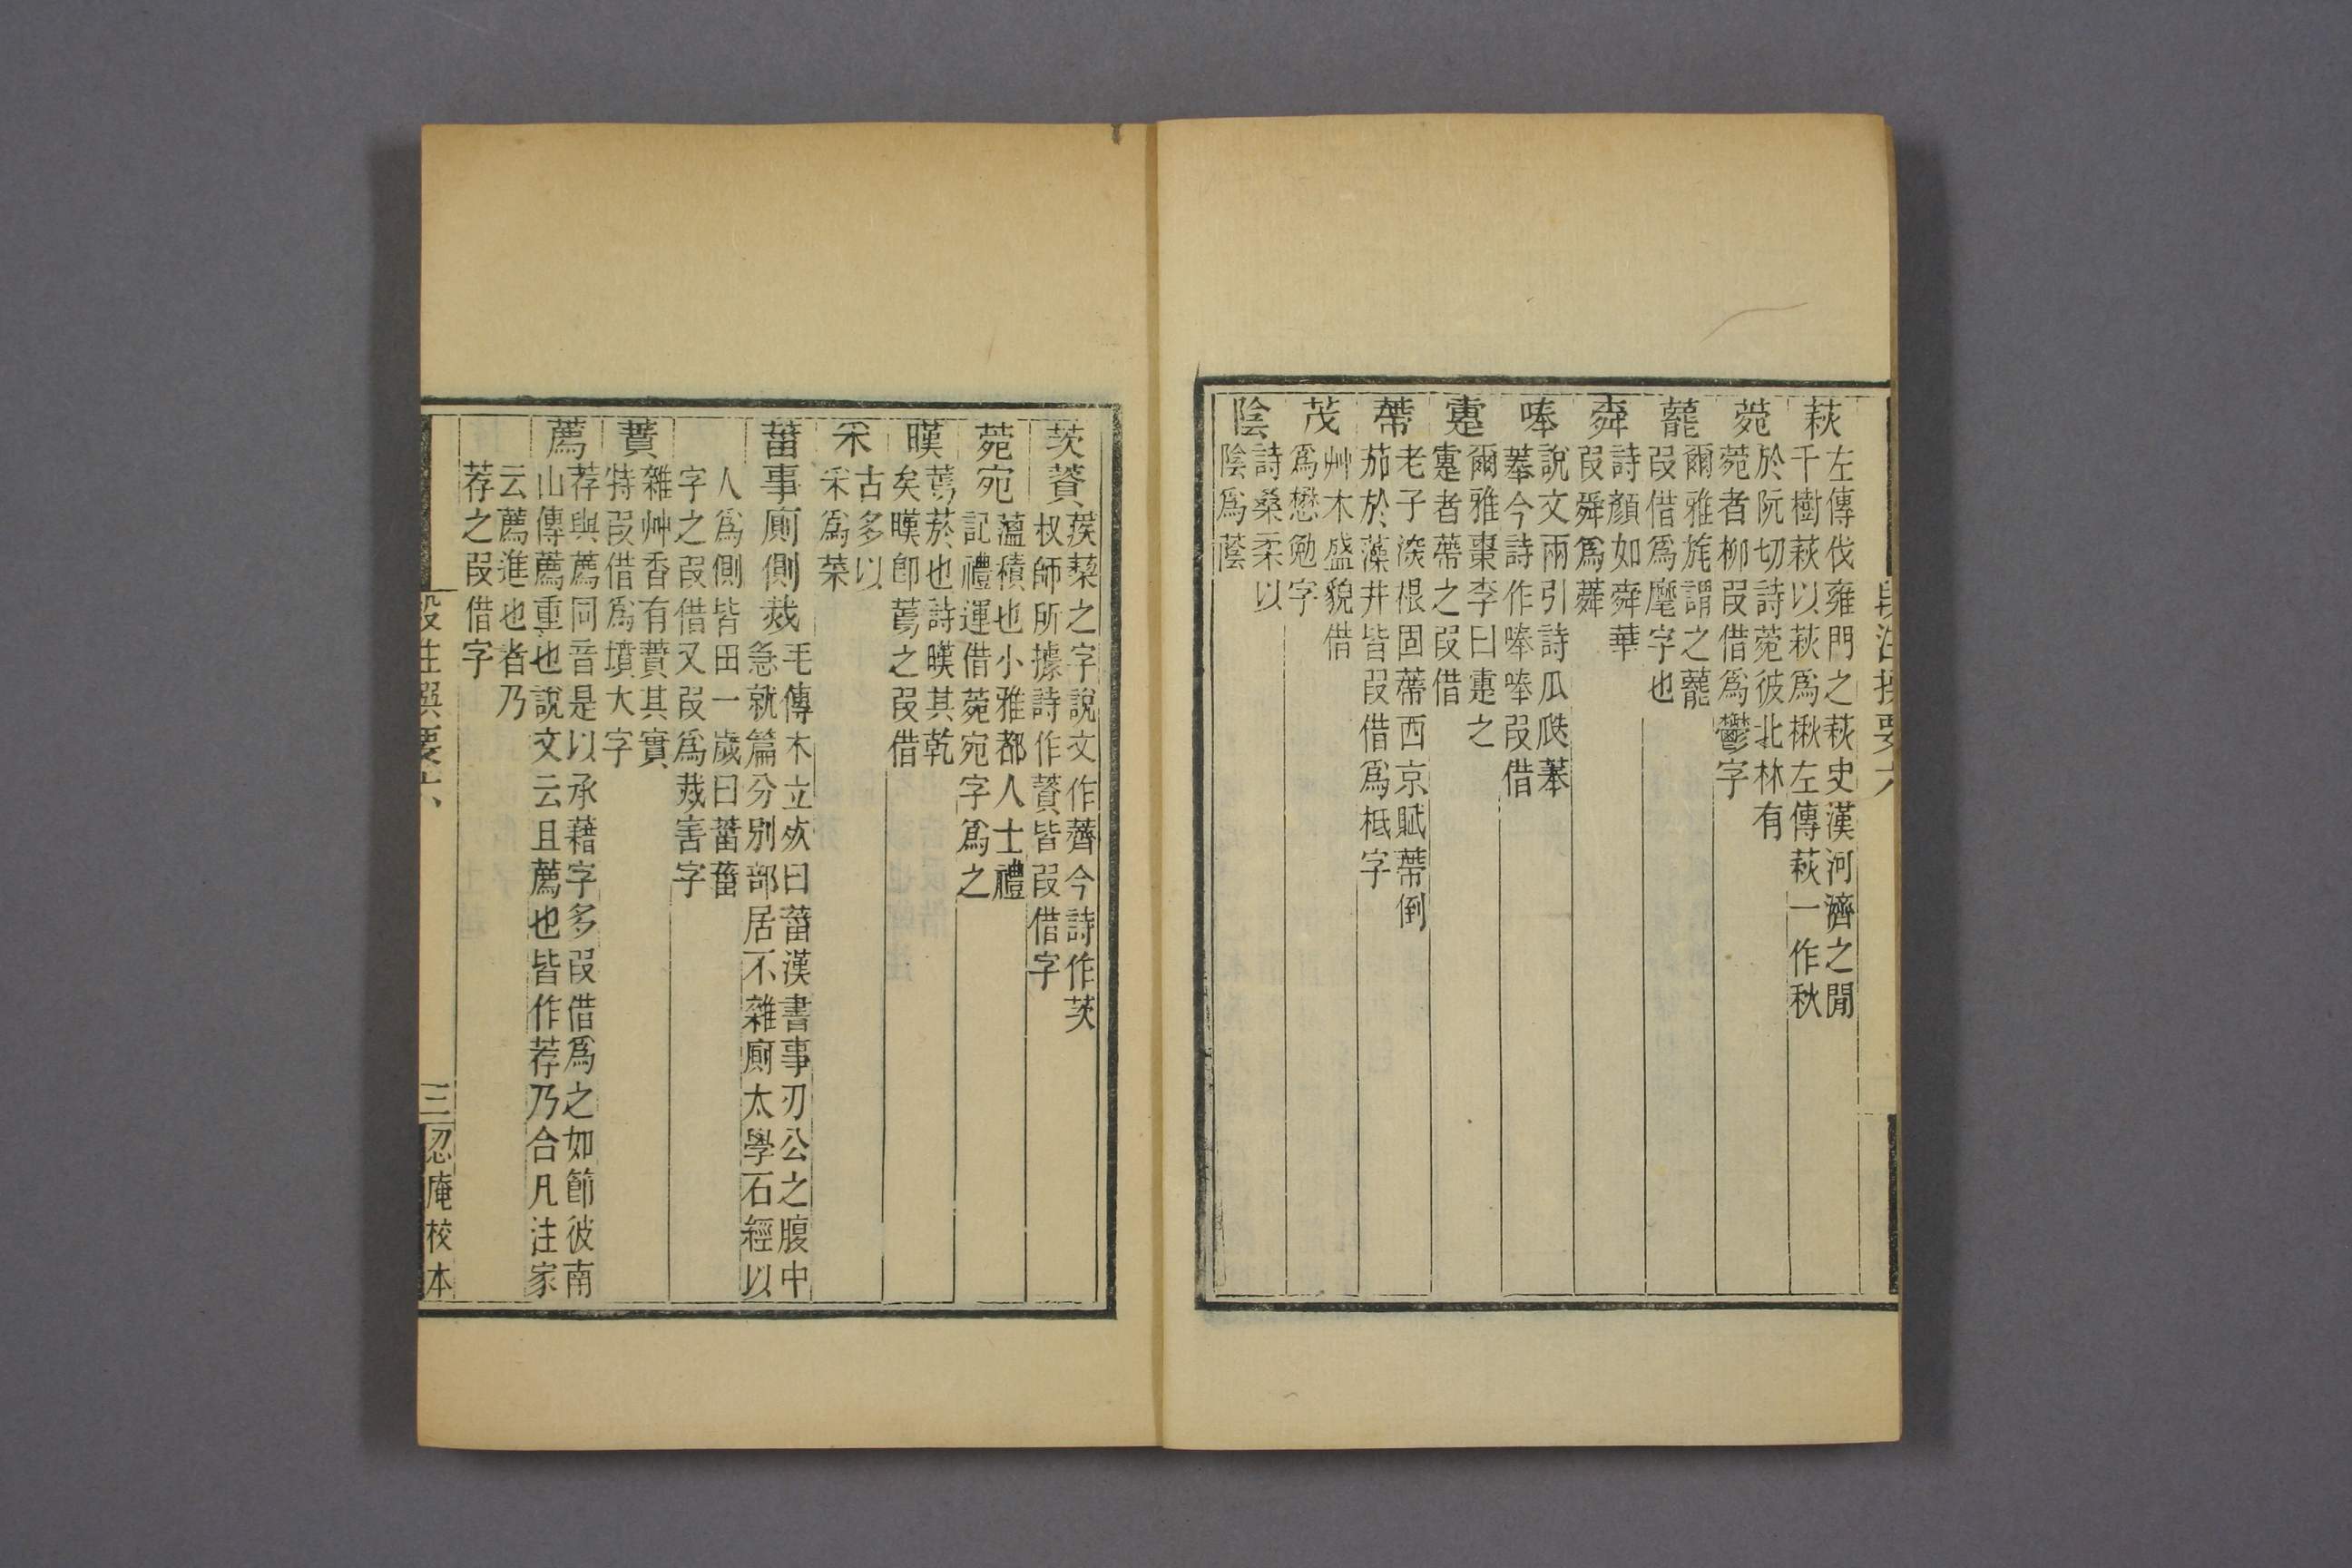 段注撰要六
萩
左傳伐雍門之萩史漢河濟之閒
千樹萩以萩爲楸左傳萩一作秋
菀
於阮切詩菀彼北林有
菀者柳叚借爲鬱字
蘢
爾雅旄謂之蘢
叚借爲麾字也
䑞
詩顏如䑞華
叚舜爲䑞
唪
說文兩引詩瓜瓞菶
菶今詩作唪唪叚借
疐
爾雅棗李曰疐之
疐者蔕之叚借
蔕
老子深根固蔕西京賦蔕倒
茄於藻井皆叚借爲柢字
茂
艸木盛貌借
爲懋勉字
陰
詩桑柔以
陰爲蔭
茨薋
蒺棃之字說文作薺今詩作茨
叔師所據詩作薋皆叚借字
菀宛
薀積也小雅都人士禮
記禮運借菀宛字爲之
暵
蔫菸也詩暵其乾
矣暵卽蔫之叚借
采
古多以
采爲菜
菑事廁側烖
毛傳木立㱙曰菑漢書事刃公之腹中
急就篇分別部居不雜廁太學石經以
人爲側皆田一歲曰菑菑
字之叚借又叚爲烖害字
蕡
雜艸香有蕡其實
特叚借爲墳大字
薦
荐與薦同音是以承藉字多叚借爲之如節彼南
山傳薦重也說文云且薦也皆作荐乃合凡注家
云薦進也者乃
荐之叚借字
段注撰要六
三
忍庵校本